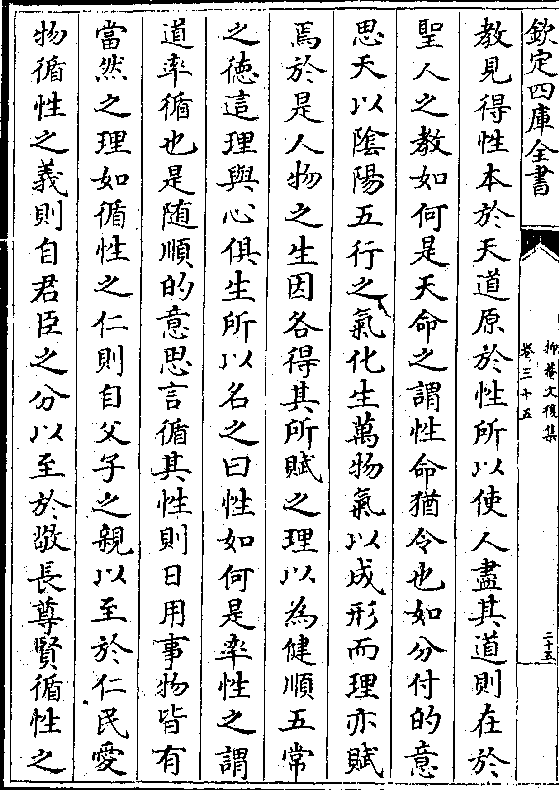 欽定四庫全書
卷三十五
教見得性本於天道原於性所以使人盡其道則在於
聖人之教如何是天命之謂性命猶令也如分付的意
思天以陰陽五行之氣化生萬物氣以成形而理亦賦
焉於是人物之生因各得其所賦之理以為健順五常
之德這理與心俱生所以名之曰性如何是率性之謂
道率循也是随順的意思言循其性則日用事物皆有
當然之理如循性之仁則自父子之親以至於仁民愛
物循性之義則自君臣之分以至於敬長尊賢循性之